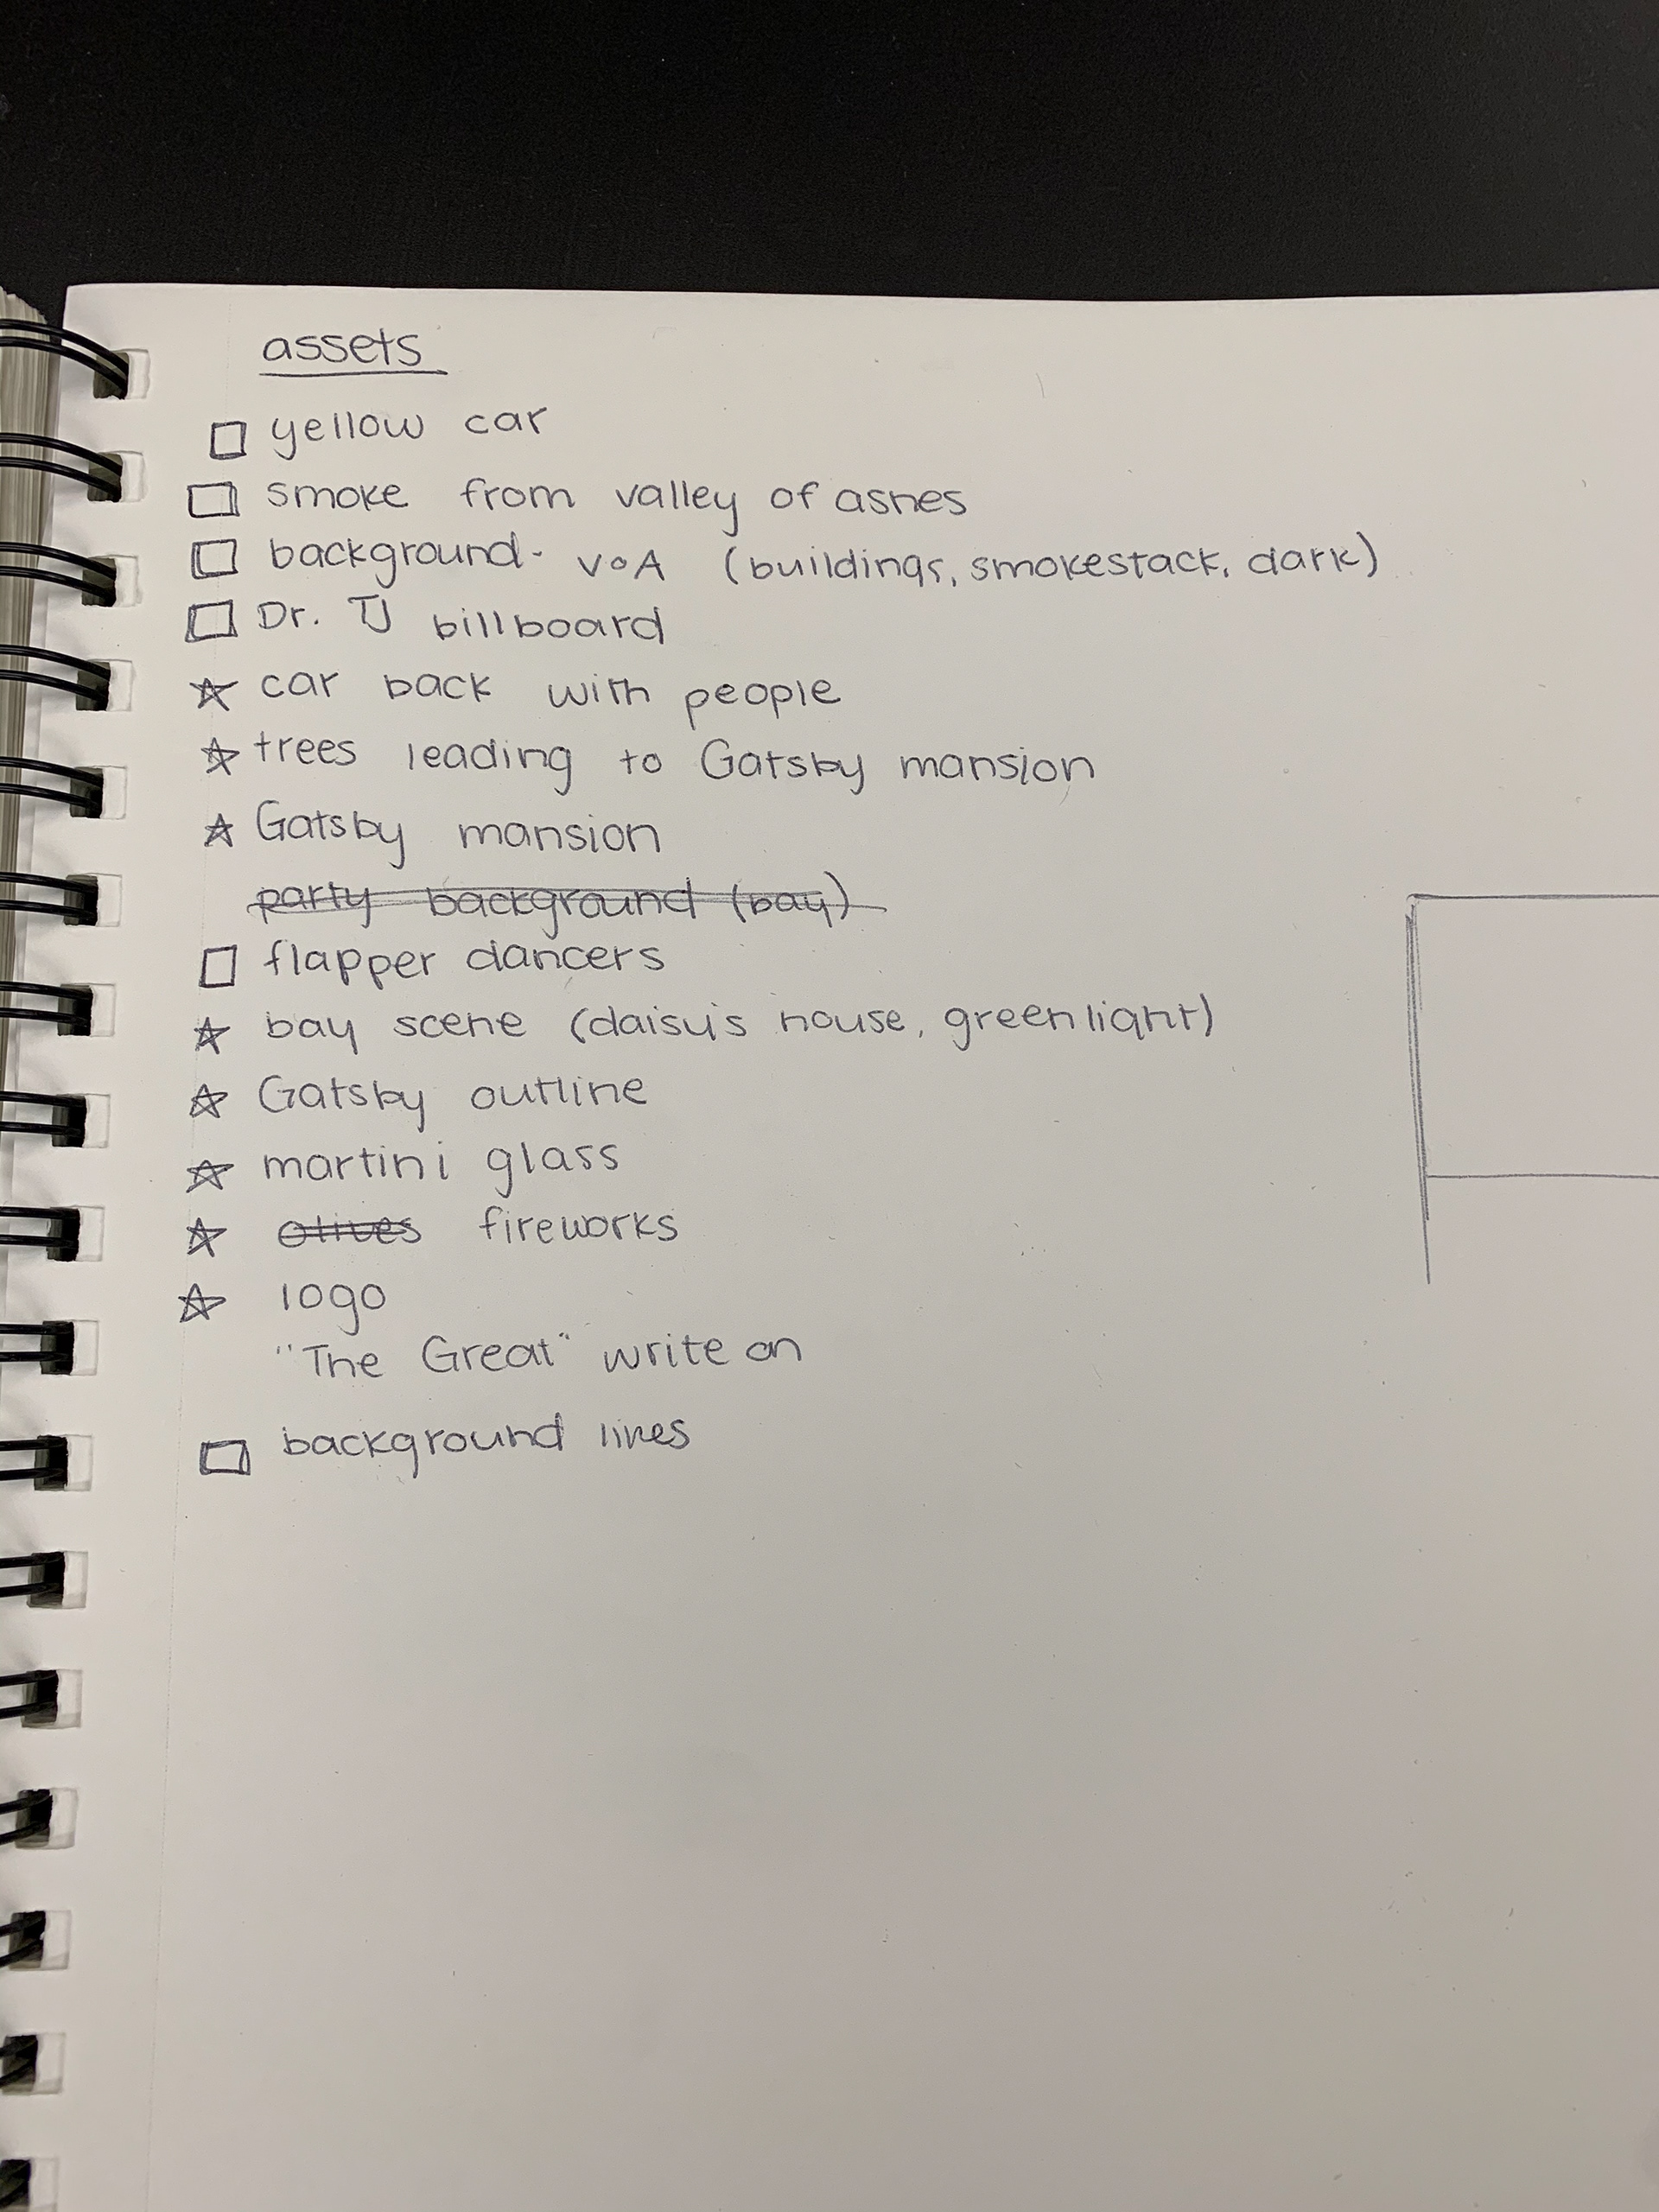 assets
yellow car
smoke from valley of ashes
background - VOA (buildings, smokestack, dark)
Dr. TJ billboard
car back with people
trees leading to Gatsby mansion
Gatsby mansion
party background (bay)
flapper dancers
bay scene (daisy's house, green light)
Gatsby outline
martini glass
olives fireworks
logo
"The Great" write on
background lines